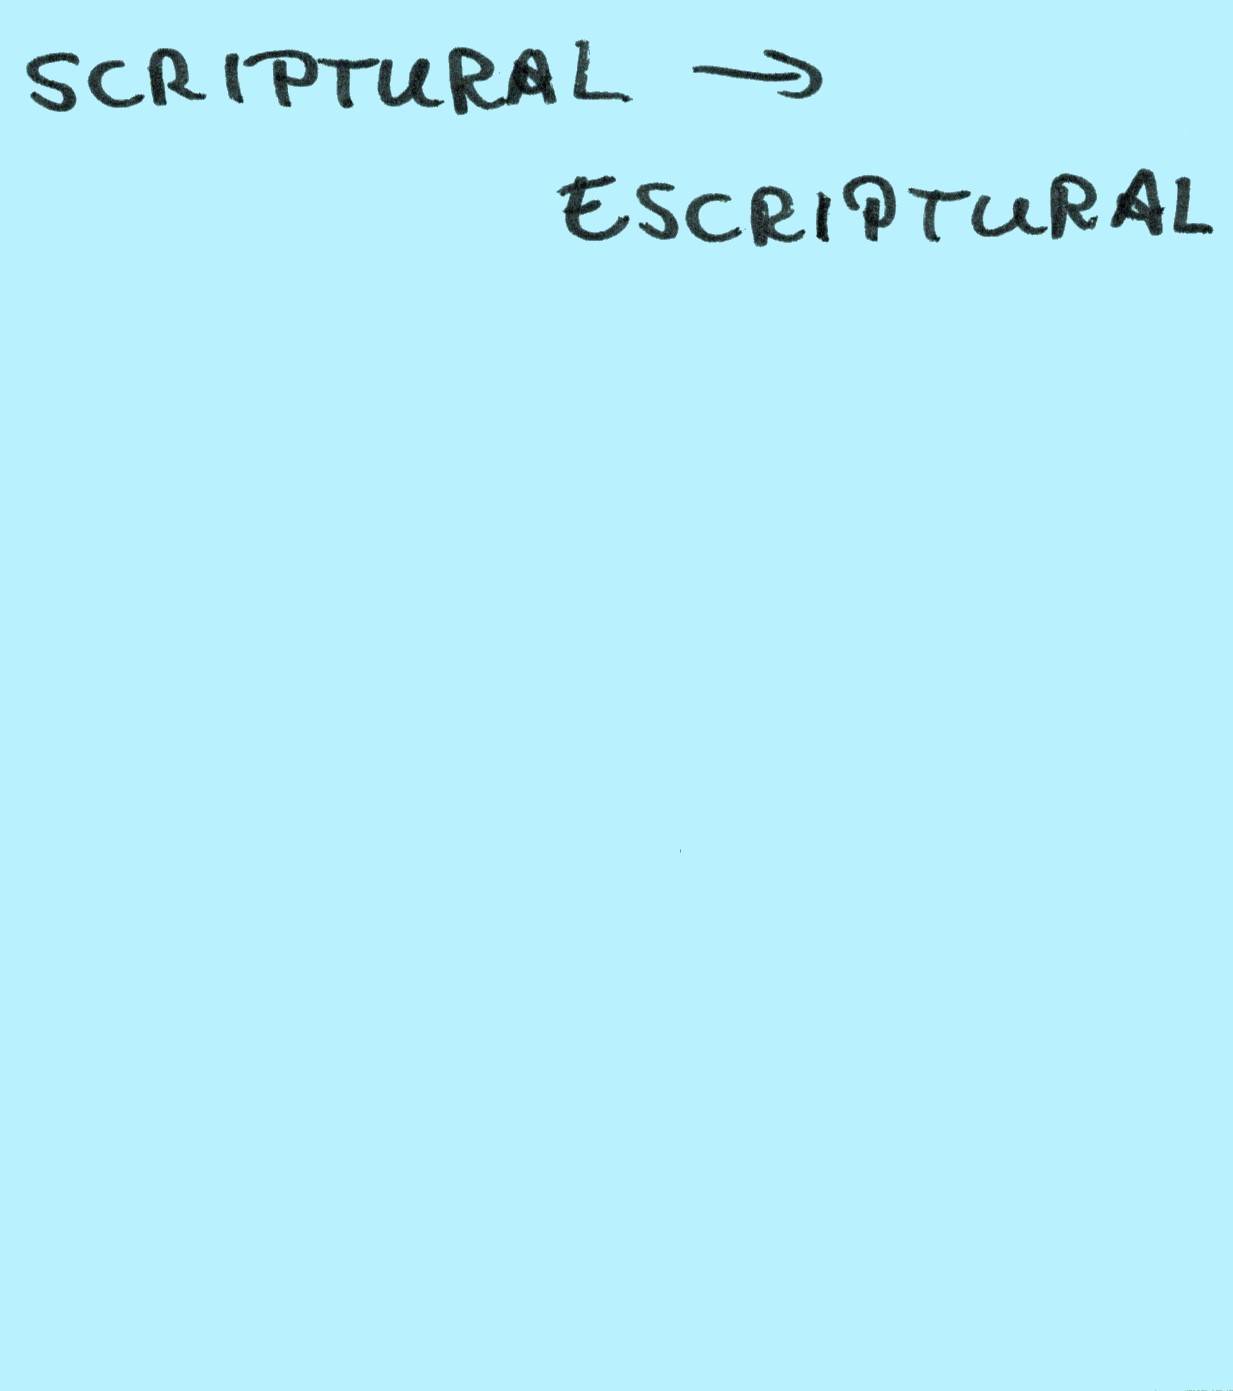 SCRIPTURAL →
ESCRIPTURAL